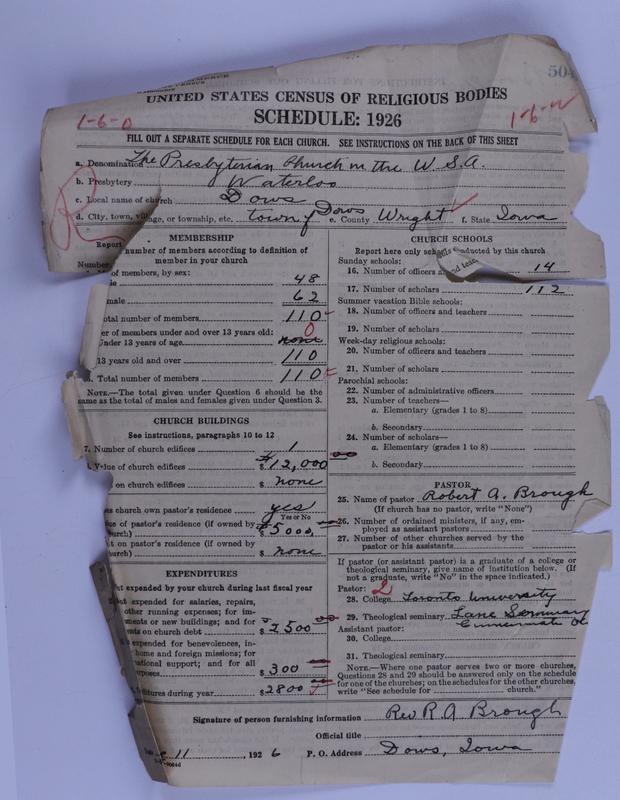 504
UNITED STATES CENSUS OF RELIGIOUS BODIES
SCHEDULE: 1926
1-6-0
1-6-
FILL OUT A SEPARATE SCHEDULE FOR EACH CHURCH. SEE INSTRUCTIONS ON THE BACK OF THIS SHEET
a. Denomination The Presbyterian Church in the U.S.A.
b. Presbytery Waterloo
c. Local name of church Dows
d. City, town, village, or township, etc. town of Dows e. County Wright f. State Iowa
R
MEMBERSHIP
Report number of members according to definition of
member in your church
Number of members, by sex:
le 48
male 62
otal number of members 110
er of members under and over 13 years old: 0
Under 13 years of age none
13 years old and over 110
Total number of members 110
NOTE.—The total given under Question 6 should be the
same as the total of males and females given under Question 3.
CHURCH BUILDINGS
See instructions, paragraphs 10 to 12
7. Number of church edifices 1
Value of church edifices $12,000
on church edifices $ none
es church own pastor's residence yes
Yes or No
ue of pastor's residence (if owned by
urch) $5000,
t on pastor's residence (if owned by
urch) $ none
EXPENDITURES
nt expended by your church during last fiscal year
nt expended for salaries, repairs,
other running expenses; for im-
ments or new buildings; and for
ents on church debt $2500
expended for benevolences, in-
home and foreign missions; for
national support; and for all
rposes $300
ditures during year $2800
CHURCH SCHOOLS
Report here only schools conducted by this church
Sunday schools:
16. Number of officers and teac 14
17. Number of scholars 112
Summer vacation Bible schools:
18. Number of officers and teachers
19. Number of scholars
Week-day religious schools:
20. Number of officers and teachers
21. Number of scholars
Parochial schools:
22. Number of administrative officers
23. Number of teachers—
a. Elementary (grades 1 to 8)
b. Secondary
24. Number of scholars—
a. Elementary (grades 1 to 8)
b. Secondary
PASTOR
25. Name of pastor Robert A. Brough
(If church has no pastor, write "None")
26. Number of ordained ministers, if any, em-
ployed as assistant pastors
27. Number of other churches served by the
pastor or his assistants
If pastor (or assistant pastor) is a graduate of a college or
theological seminary, give name of institution below. (If
not a graduate, write "No" in the space indicated.)
Pastor: 2
28. College Toronto University
29. Theological seminary Lane Seminary
Cincinnati O
Assistant pastor:
30. College
31. Theological seminary
NOTE.—Where one pastor serves two or more churches,
Questions 28 and 29 should be answered only on the schedule
for one of the churches; on the schedules for the other churches,
write "See schedule for church."
Signature of person furnishing information Rev R. A Brough
Official title
11 1926 P. O. Address Dows, Iowa